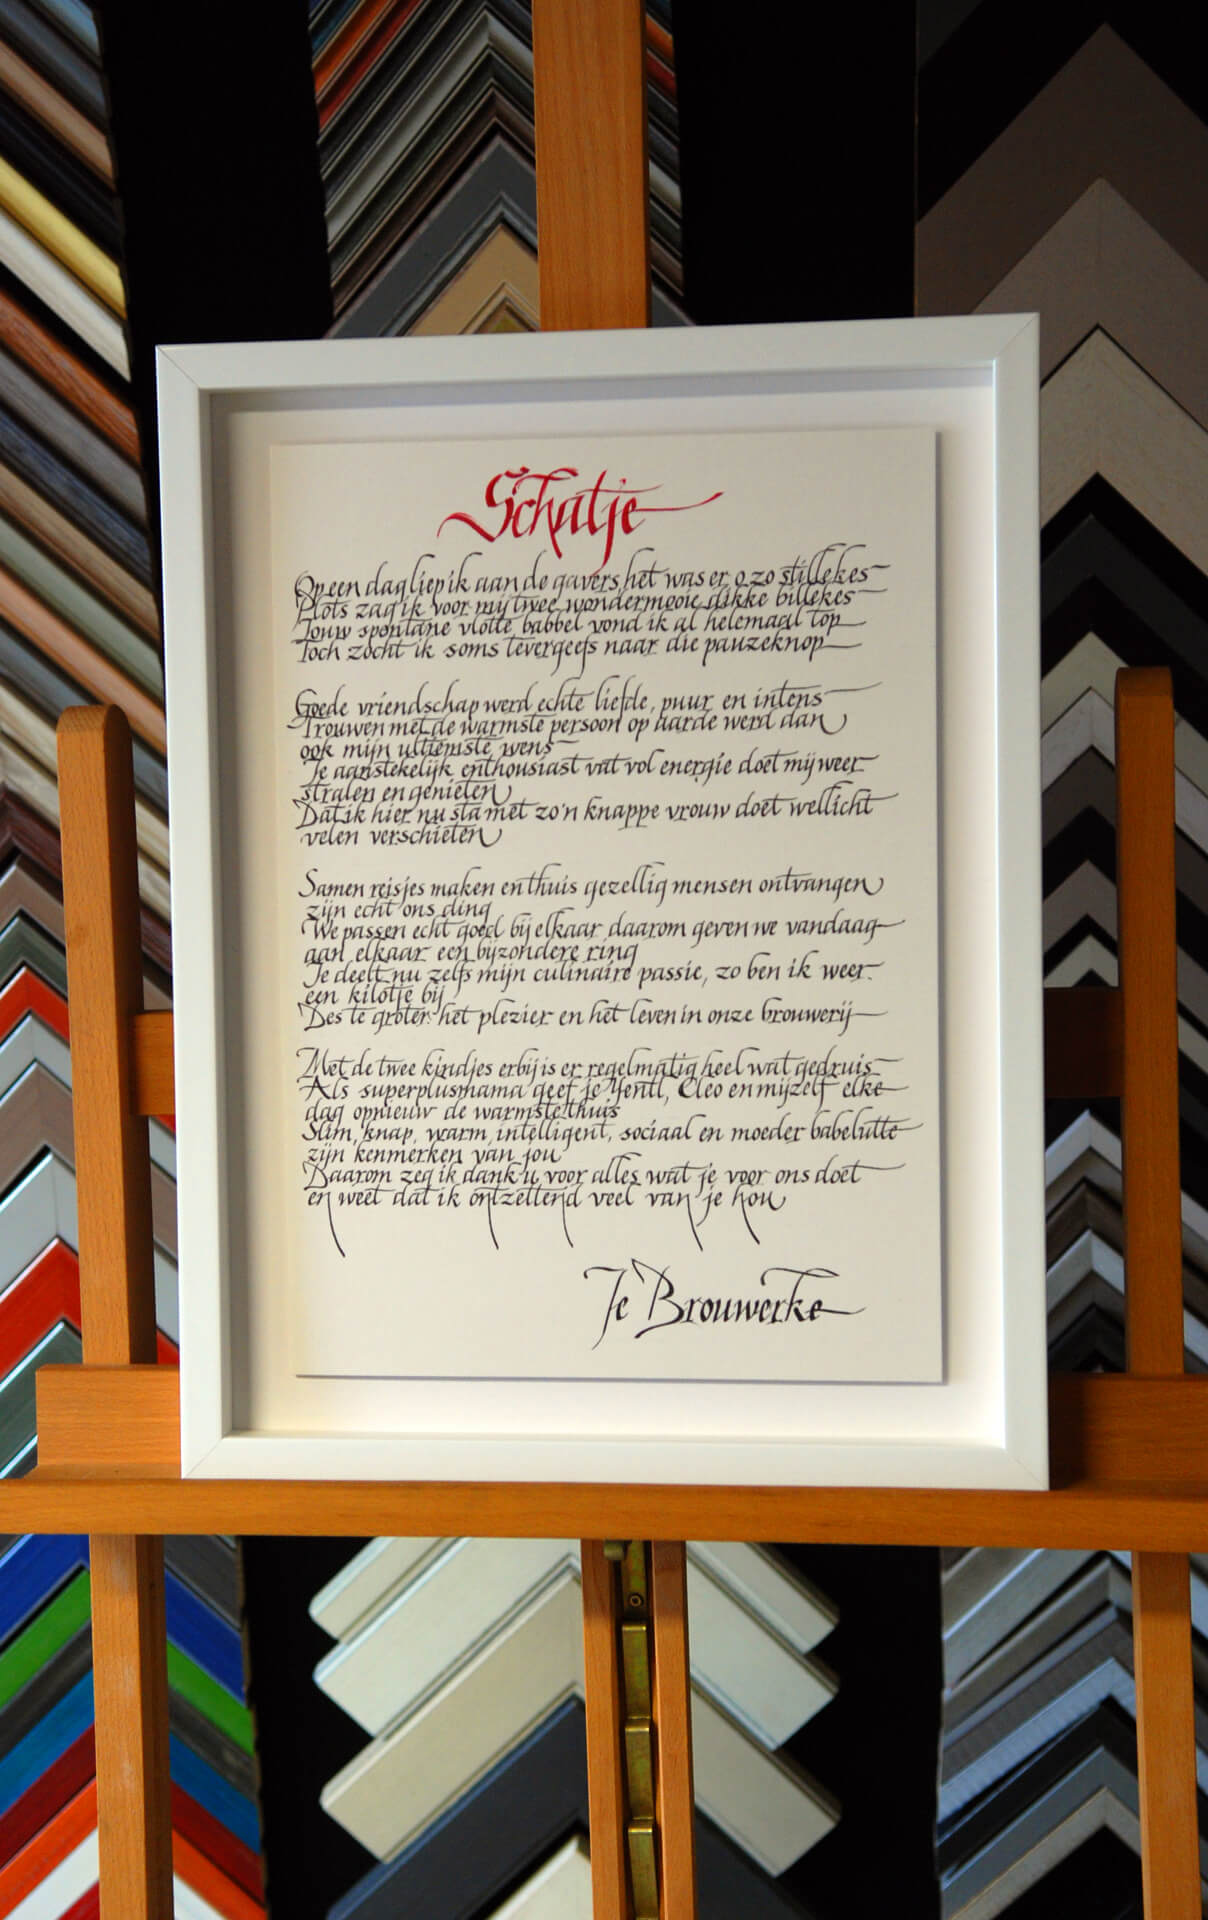 Schatje
Op een dag liep ik aan de gavers het was er o zo stillekes
Plots zag ik voor mij twee wondermooie dikke billekes
Jouw spontane vlotte babbel vond ik al helemaal top
Toch zocht ik soms tevergeefs naar die pauzeknop
Goede vriendschap werd echte liefde, puur en intens
Trouwen met de warmste persoon op aarde werd dan
ook mijn ultiemste wens
Je aanstekelijk enthousiast vat vol energie doet mij weer
stralen en genieten
Dat ik hier nu sta met zo'n knappe vrouw doet wellicht
velen verschieten
Samen reisjes maken en thuis gezellig mensen ontvangen
zijn echt ons ding
We passen echt goed bij elkaar daarom geven we vandaag
aan elkaar een bijzondere ring
Je deelt nu zelfs mijn culinaire passie, zo ben ik weer
een kilotje bij
Des te groter het plezier en het leven in onze brouwerij
Met de twee kindjes erbij is er regelmatig heel wat gedruis
Als superplusmama geef je Yentl, Cleo en mijzelf elke
dag opnieuw de warmste thuis
Slim, knap, warm, intelligent, sociaal en moeder babelutte
zijn kenmerken van jou
Daarom zeg ik dank u voor alles wat je voor ons doet
en weet dat ik ontzettend veel van je hou
Je Brouwerke